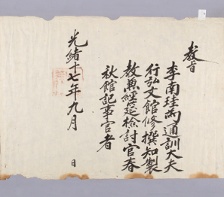 教旨
李南珪爲通訓大夫
行弘文館修撰知製
教兼經筵檢討官春
秋館記事官者
光緒十七年九月 日